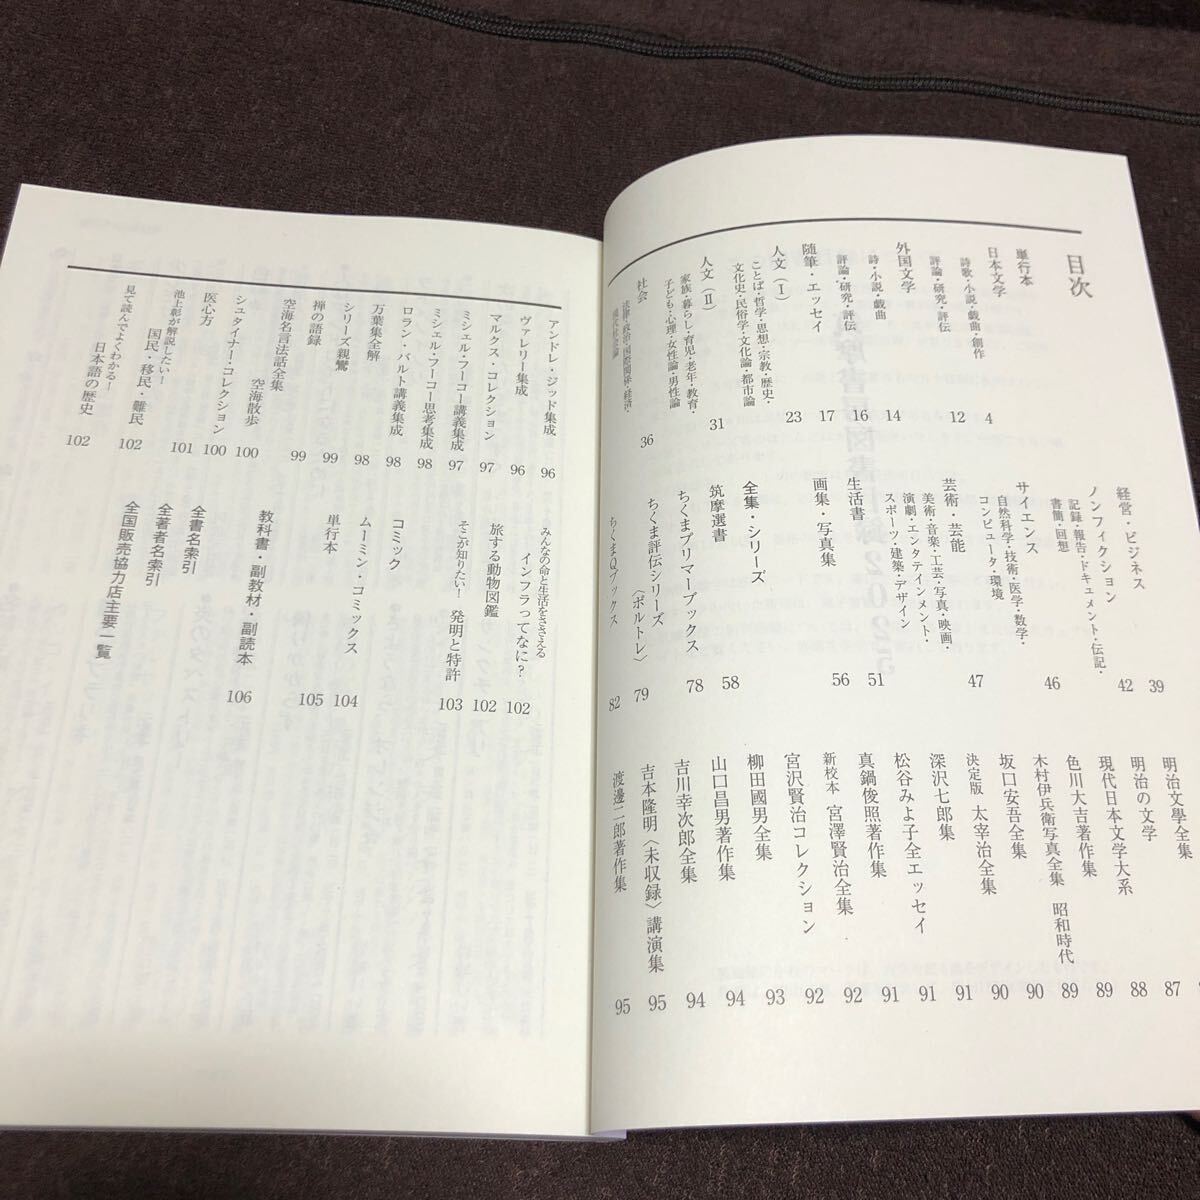 目次
単行本
日本文学 4
詩歌・小説・戯曲・創作
評論・研究・評伝 12
外国文学 14
詩・小説・戯曲
評論・研究・評伝 16
随筆・エッセイ 17
人文（Ⅰ） 23
ことば・哲学・思想・宗教・歴史・
文化史・民俗学・文化論・都市論
人文（Ⅱ） 31
家族・暮らし・育児・老年・教育・
子ども・心理・女性論・男性論
社会 36
法律・政治・国際関係・経済・
現代社会論
経営・ビジネス 39
ノンフィクション 42
記録・報告・ドキュメント・伝記・
書簡・回想
サイエンス 46
自然科学・技術・医学・数学・
コンピュータ・環境
芸術・芸能 47
美術・音楽・工芸・写真・映画・
演劇・エンタテインメント・
スポーツ・建築・デザイン
生活書 51
画集・写真集 56
全集・シリーズ
筑摩選書 58
ちくまプリマーブックス 78
ちくま評伝シリーズ
〈ポルトレ〉 79
ちくまQブックス 82
明治文學全集 87
明治の文学 88
現代日本文学大系 89
色川大吉著作集 89
木村伊兵衛写真全集 昭和時代 90
坂口安吾全集 90
決定版 太宰治全集 91
深沢七郎集 91
松谷みよ子全エッセイ 91
真鍋俊照著作集 92
新校本 宮澤賢治全集 92
宮沢賢治コレクション 93
柳田國男全集 94
山口昌男著作集 94
吉川幸次郎全集
吉本隆明〈未収録〉講演集 95
渡邊二郎著作集 95
アンドレ・ジッド集成 96
ヴァレリー集成 96
マルクス・コレクション 97
ミシェル・フーコー講義集成 97
ミシェル・フーコー思考集成 98
ロラン・バルト講義集成 98
万葉集全解 98
シリーズ親鸞 99
禅の語録 99
空海名言法話全集
空海散歩 100
シュタイナー・コレクション 100
医心方 101
池上彰が解説したい！
国民・移民・難民 102
見て読んでよくわかる！
日本語の歴史 102
みんなの命と生活をささえる
インフラってなに？ 102
旅する動物図鑑 102
そこが知りたい！ 発明と特許 103
コミック
ムーミン・コミックス 104
単行本 105
教科書・副教材・副読本 106
全書名索引
全著者名索引
全国販売協力店主要一覧